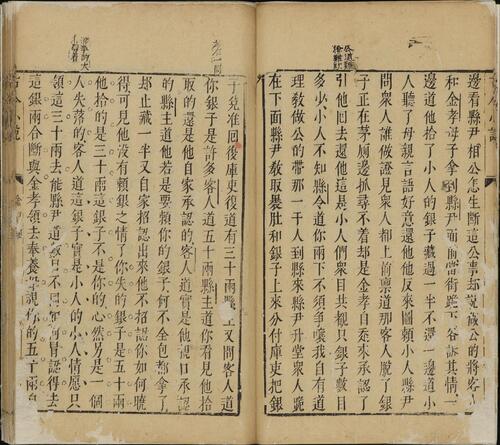 邊看縣尹相公怎生斷這公事却說做公的將客人
和金孝母子拿到縣尹面前當街跪下各訴其情一
邊道他拾了小人的銀子藏過一半不還一邊道小
人聽了母親言語好意還他他反來圖賴小人縣尹
問衆人誰做證見衆人都上前禀道那客人脫了銀
子正在茅厠邊抓尋不着却是金孝自走來承認了
引他回去還他這是小人們衆目共覩只銀子數目
多少小人不知縣令道你兩下不須爭嚷我自有道
理教做公的帶那一干人到縣來縣尹升堂衆人跪
在下面縣尹教取裹肚和銀子上來分付庫吏把銀
子兌准回復庫吏復道有三十兩縣主又問客人
你銀子是許多客人道五十兩縣主道你看見他拾
取的還是他自家承認的客人道實是他親口承認
的縣主道他若是要賴你的銀子何不全包都拿了
却止藏一半又自家招認出來他不招認你如何曉
得可見他沒有賴銀之情了你失的銀子是五十兩
他拾的是三十兩這銀子不是你的必然另是一個
人失落的客人道這銀子實是小人的小人情愿只
領這三十兩去罷縣尹道數目不同如何冒認得去
這銀兩合斷與金孝領去奉養母親你的五十兩自